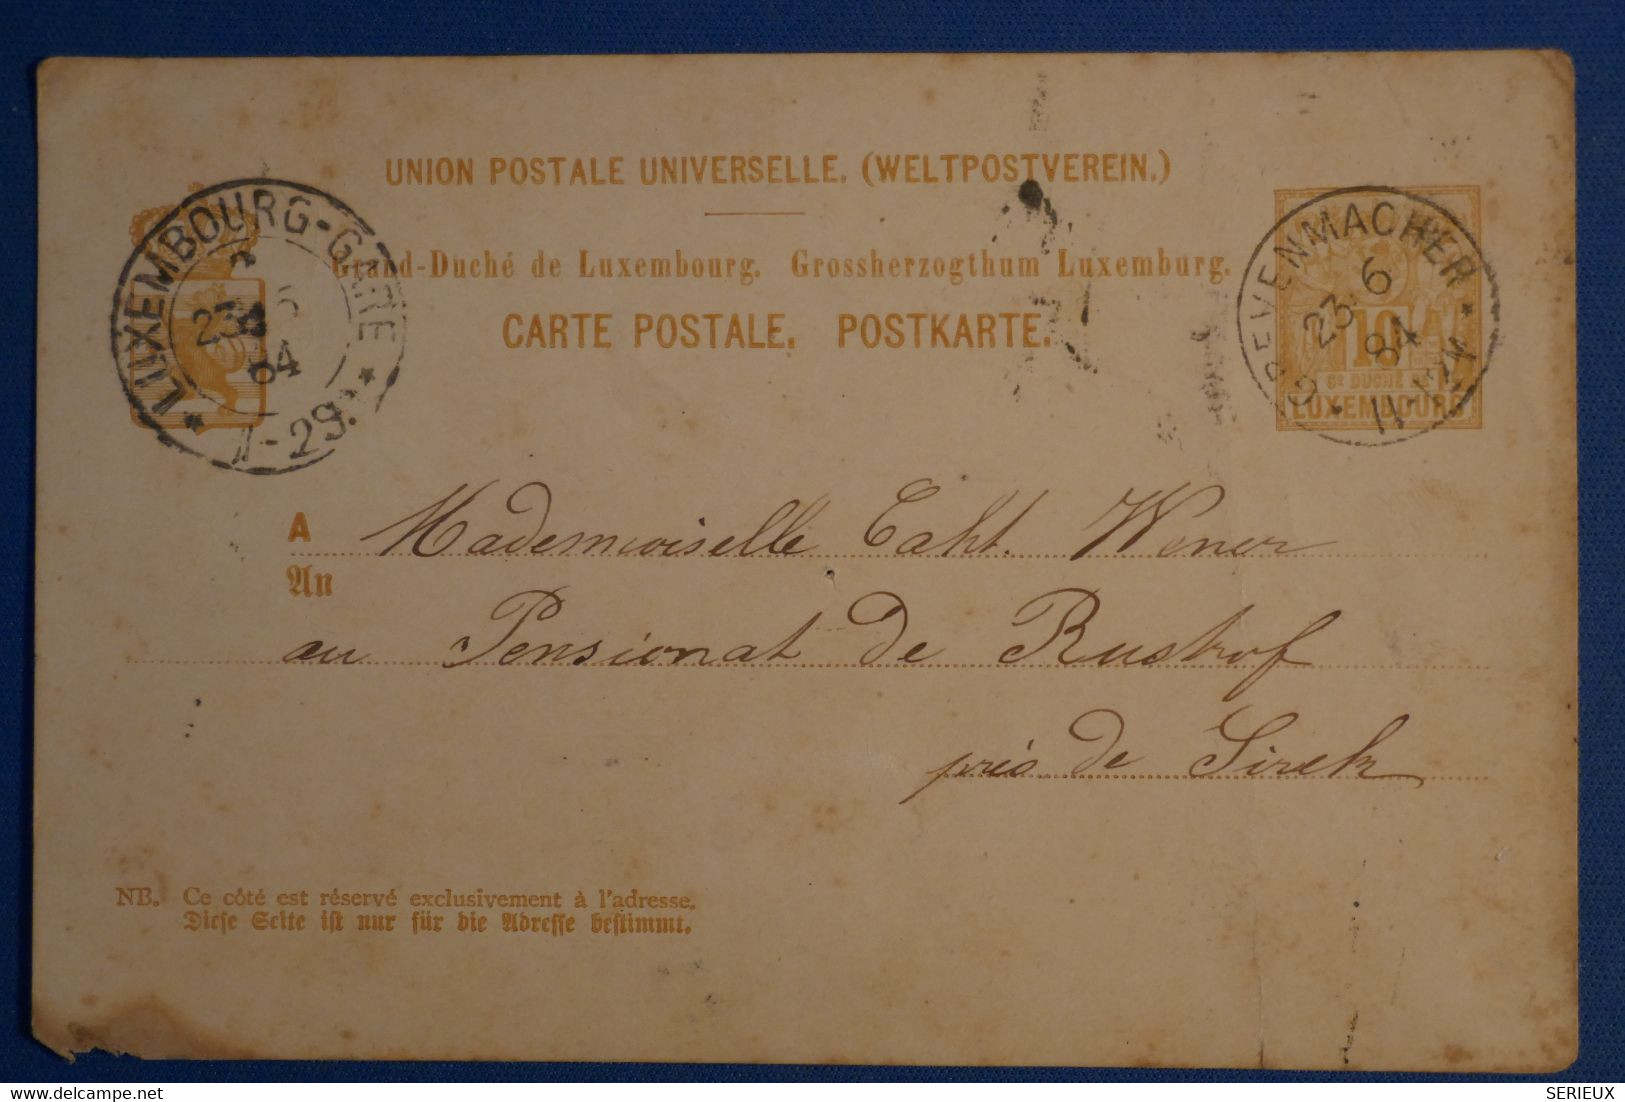 UNION POSTALE UNIVERSELLE. (WELTPOSTVEREIN.)
Grand-Duché de Luxembourg. Grossherzogthum Luxemburg.
CARTE POSTALE. POSTKARTE.
LUXEMBOURG-GARE
23 6
84
7-29
GREVENMACHER
23 6
84
11-12M
10
GD DUCHÉ DE
LUXEMBOURG
A Mademoiselle Caht. Wener
An
au Pensionat de Rustrof
près de Sirck
NB. Ce côté est réservé exclusivement à l'adresse.
Diese Seite ist nur für die Adresse bestimmt.
delcampe.net
SERIEUX